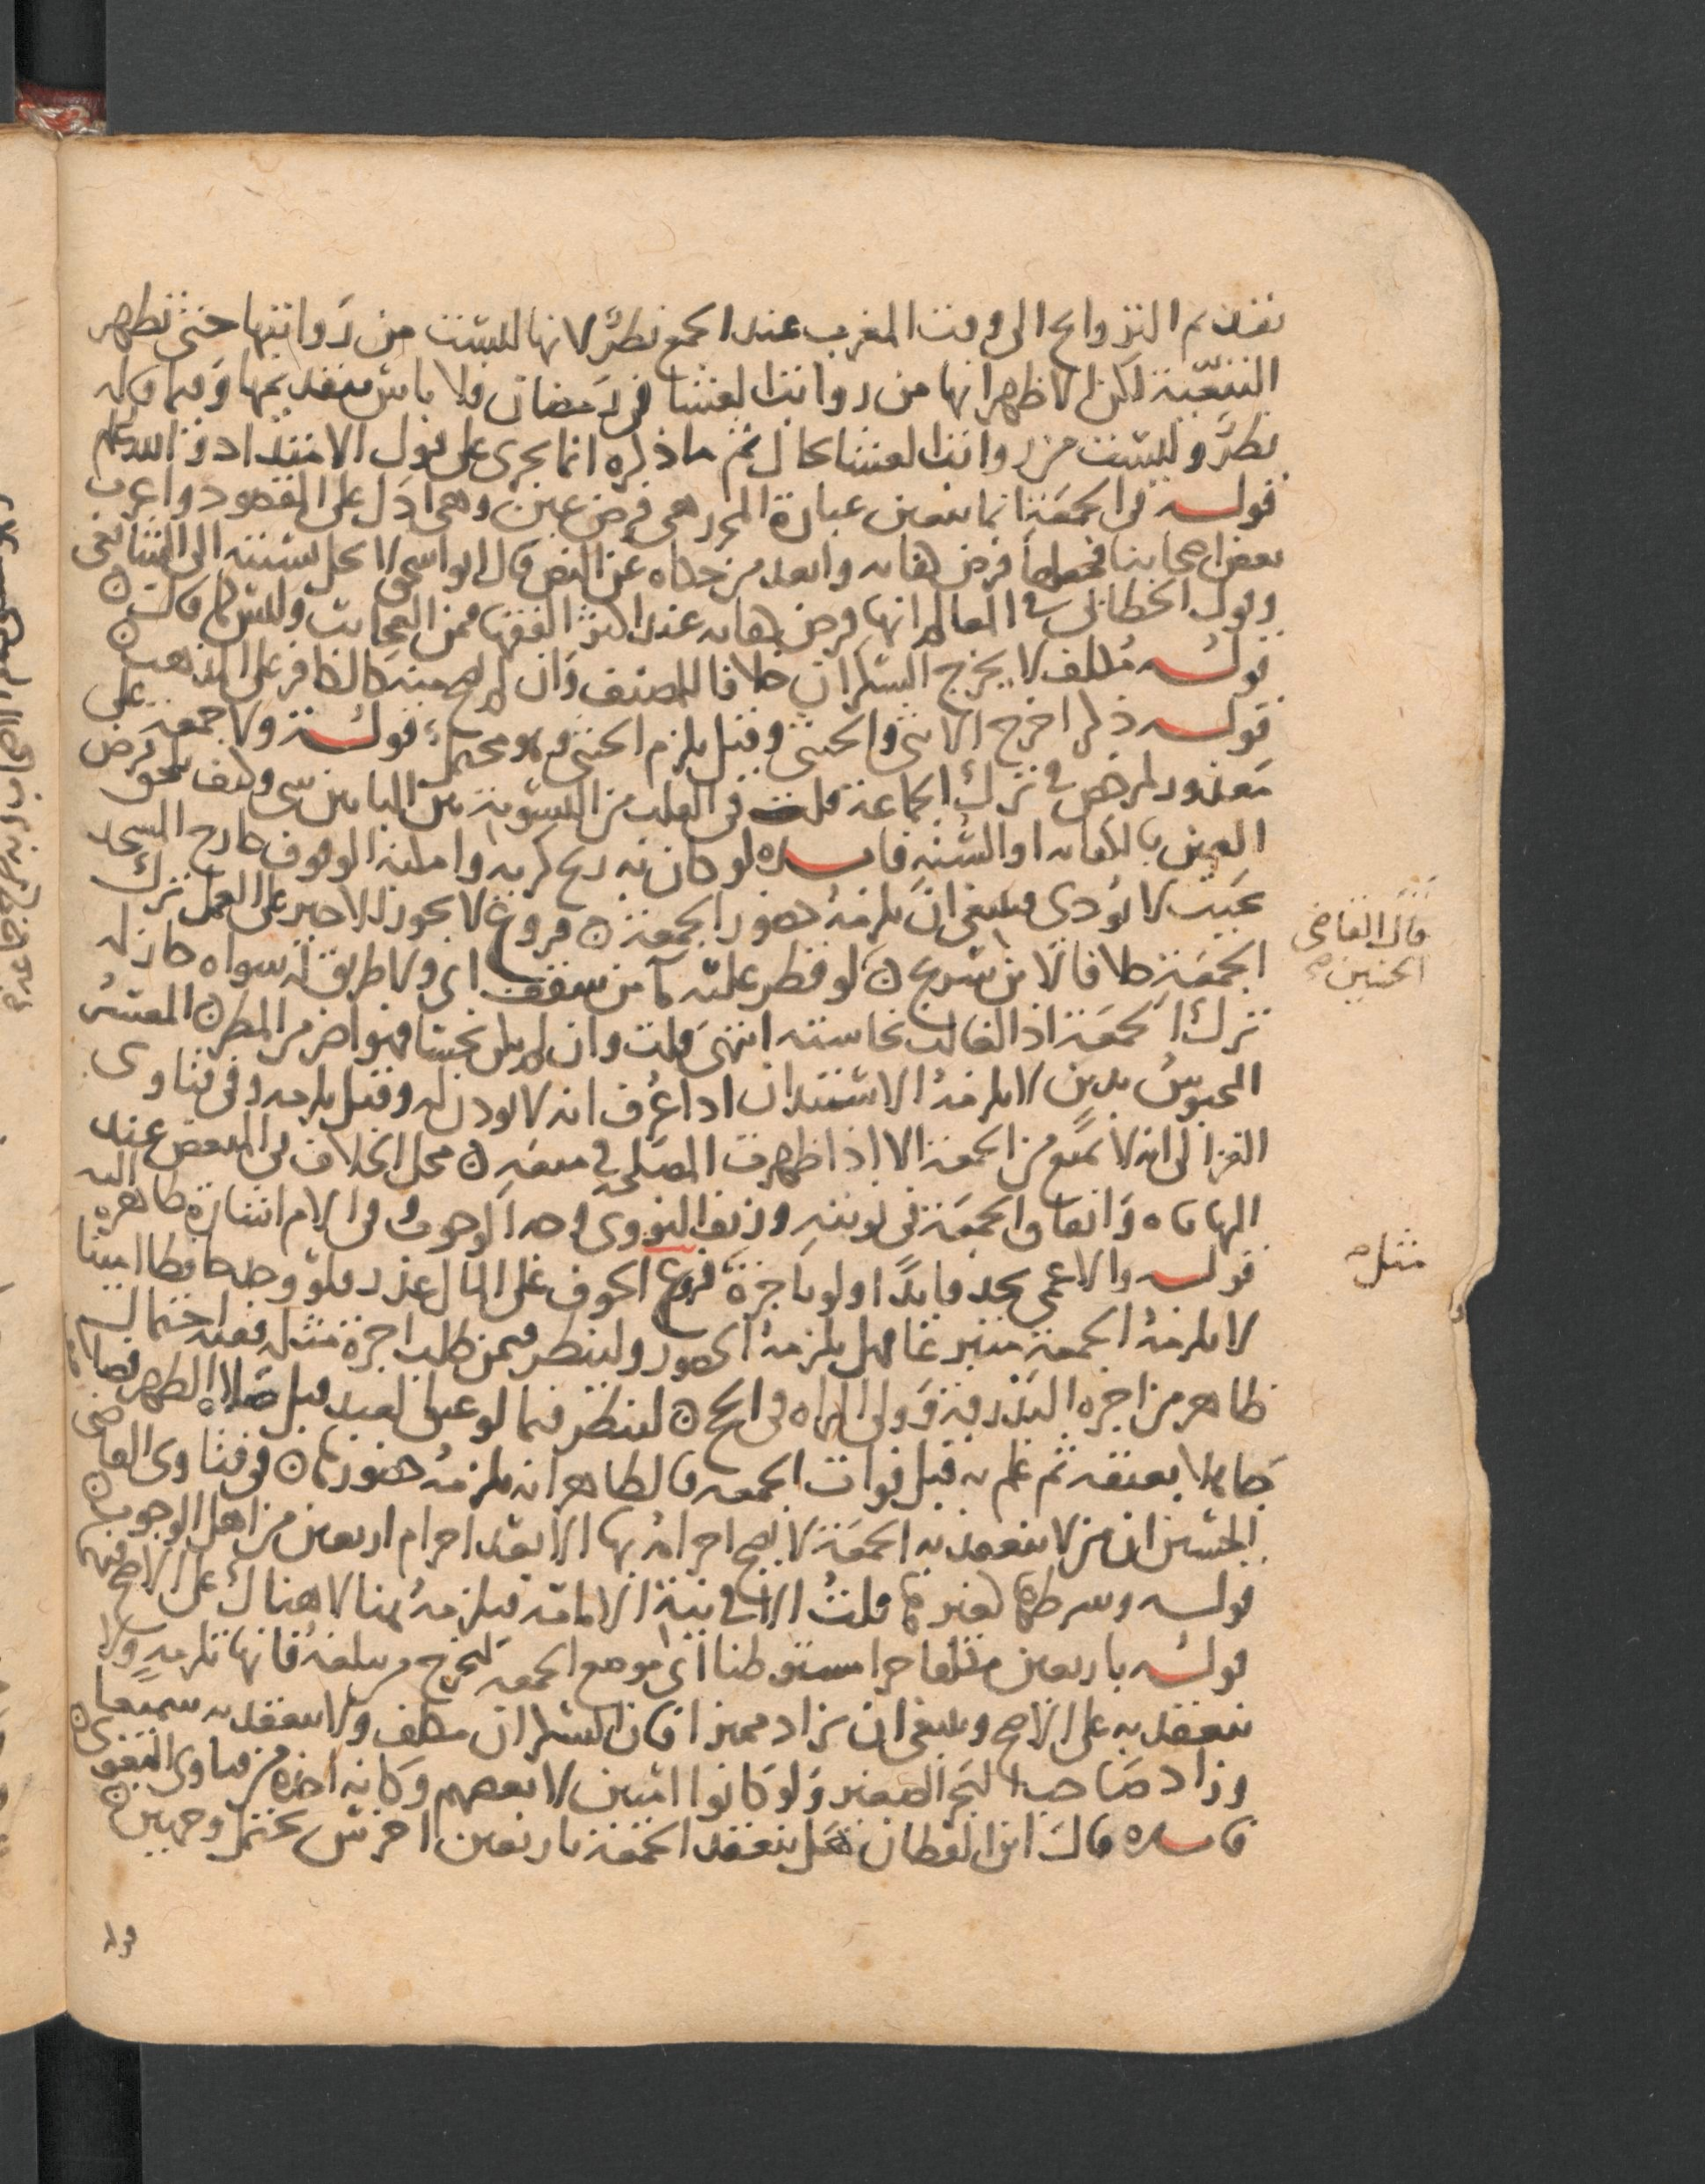 تقديم التراويح الى وقت المغرب عند الجمع نظر لانها ليست من رواتبها حتى تظهر
التبعية لكن لا ظهر انها من رواتب العشا في رمضان فلا باس بتقديمها وفيما قاله
نظر وليست من رواتب العشا بحال ثم ما ذكره انما يجري على قول الامتداد والله اعلم
قوله في الجمعة انما تتعين عبارة المحرر هي فرض عين وهي ادل على المقصود واغرب
بعض اصحابنا فجعلها فرض كفايه وابعد من حكاه عن النص قال ابو اسحق لا يحل نسبته الى الشافعي
وقول الخطابي في المعالم انها فرض كفايه عند اكثر الفقها فمن العجايب وليس كما قال
قوله مكلف لا يخرج السكران خلافا للمصنف وان لم تصح منه كالكافر على المذهب
قوله ذكر اخرج الانثى والخنثى وقيل يلزم الخنثى وهو محتمل قوله ولا جمعة على
معذور لمرخص في ترك الجماعة قلت في القلب من التسوية بين البابين شي وكيف يلحق فرض
العين بالكفايه او السنة فايده لو كان به ريح كريه وامكنه الوقوف خارج المسجد
بحيث لا يؤدي فينبغي ان يلزمه حضور الجمعة فروع لا يجوز للاجير على العمل ترك
الجمعة خلافا لابن شريح لو قطر عليه ما من سقف اي ولا طريق له سواه جاز له
قال القاضي
الحسين صح
ترك الجمعة اذ الغالب نجاسته انتهى قلت وان لم يكن نجسا فهو اضر من المطر المعسر
المحبوس بدين لا يلزمه الاستئذان اذا عرف انه لا يوذن له وقيل يلزمه وفي فتاوى
الغزالي انه لا يمنع من الجمعة الا اذا ظهرت المصلحة في منعه محل الخلاف في المبعض عند
المهاياه واتفاق الجمعة في نوبته وزيف النووي وجه الوجوب وفي الام اشارة ظاهره اليه
قوله والاعمى يجد قايدا ولو باجرة فروع الخوف على المال عذر فلو وجد حافظا امينا
مثل صح
لا يلزمه الجمعة متبرعا فهل يلزمه الحضور ولينظر فيمن طلب اجرة مثله ففيه احتمال
ظاهر من اجره البذرقة وولي المراه في الحج لينظر فيما لو عتق العبد قبل صلاة الظهر فصلى
جاهلا بعتقه ثم علم به قبل فوات الجمعه فالظاهر انه يلزمه حضورها في فتاوى القاضي
الحسين ان من لا ينعقد به الجمعة لا يصح احرامه بها الا بعد احرام اربعين من اهل الوجوب
قوله وشرطها كغيرها قلت الا في نية الامامة فيلزمه هنا لا هناك على الاصح فيهما
قوله باربعين مكلفا حرا مستوطنا اي موضع الجمعة ليخرج من بلغه فانها تلزمه ولا
تنعقد به على الاصح وينبغي ان يزاد مميزا فان السكران مكلف ولا ينعقد به سميعا
وزاد صاحب البحر الصغير ولو كانوا اميين لا بعضهم وكانه اخذه من فتاوى البغوي
فايده قال ابن القطان هل ينعقد الجمعة باربعين اخرس يحتمل وجهين
ولا